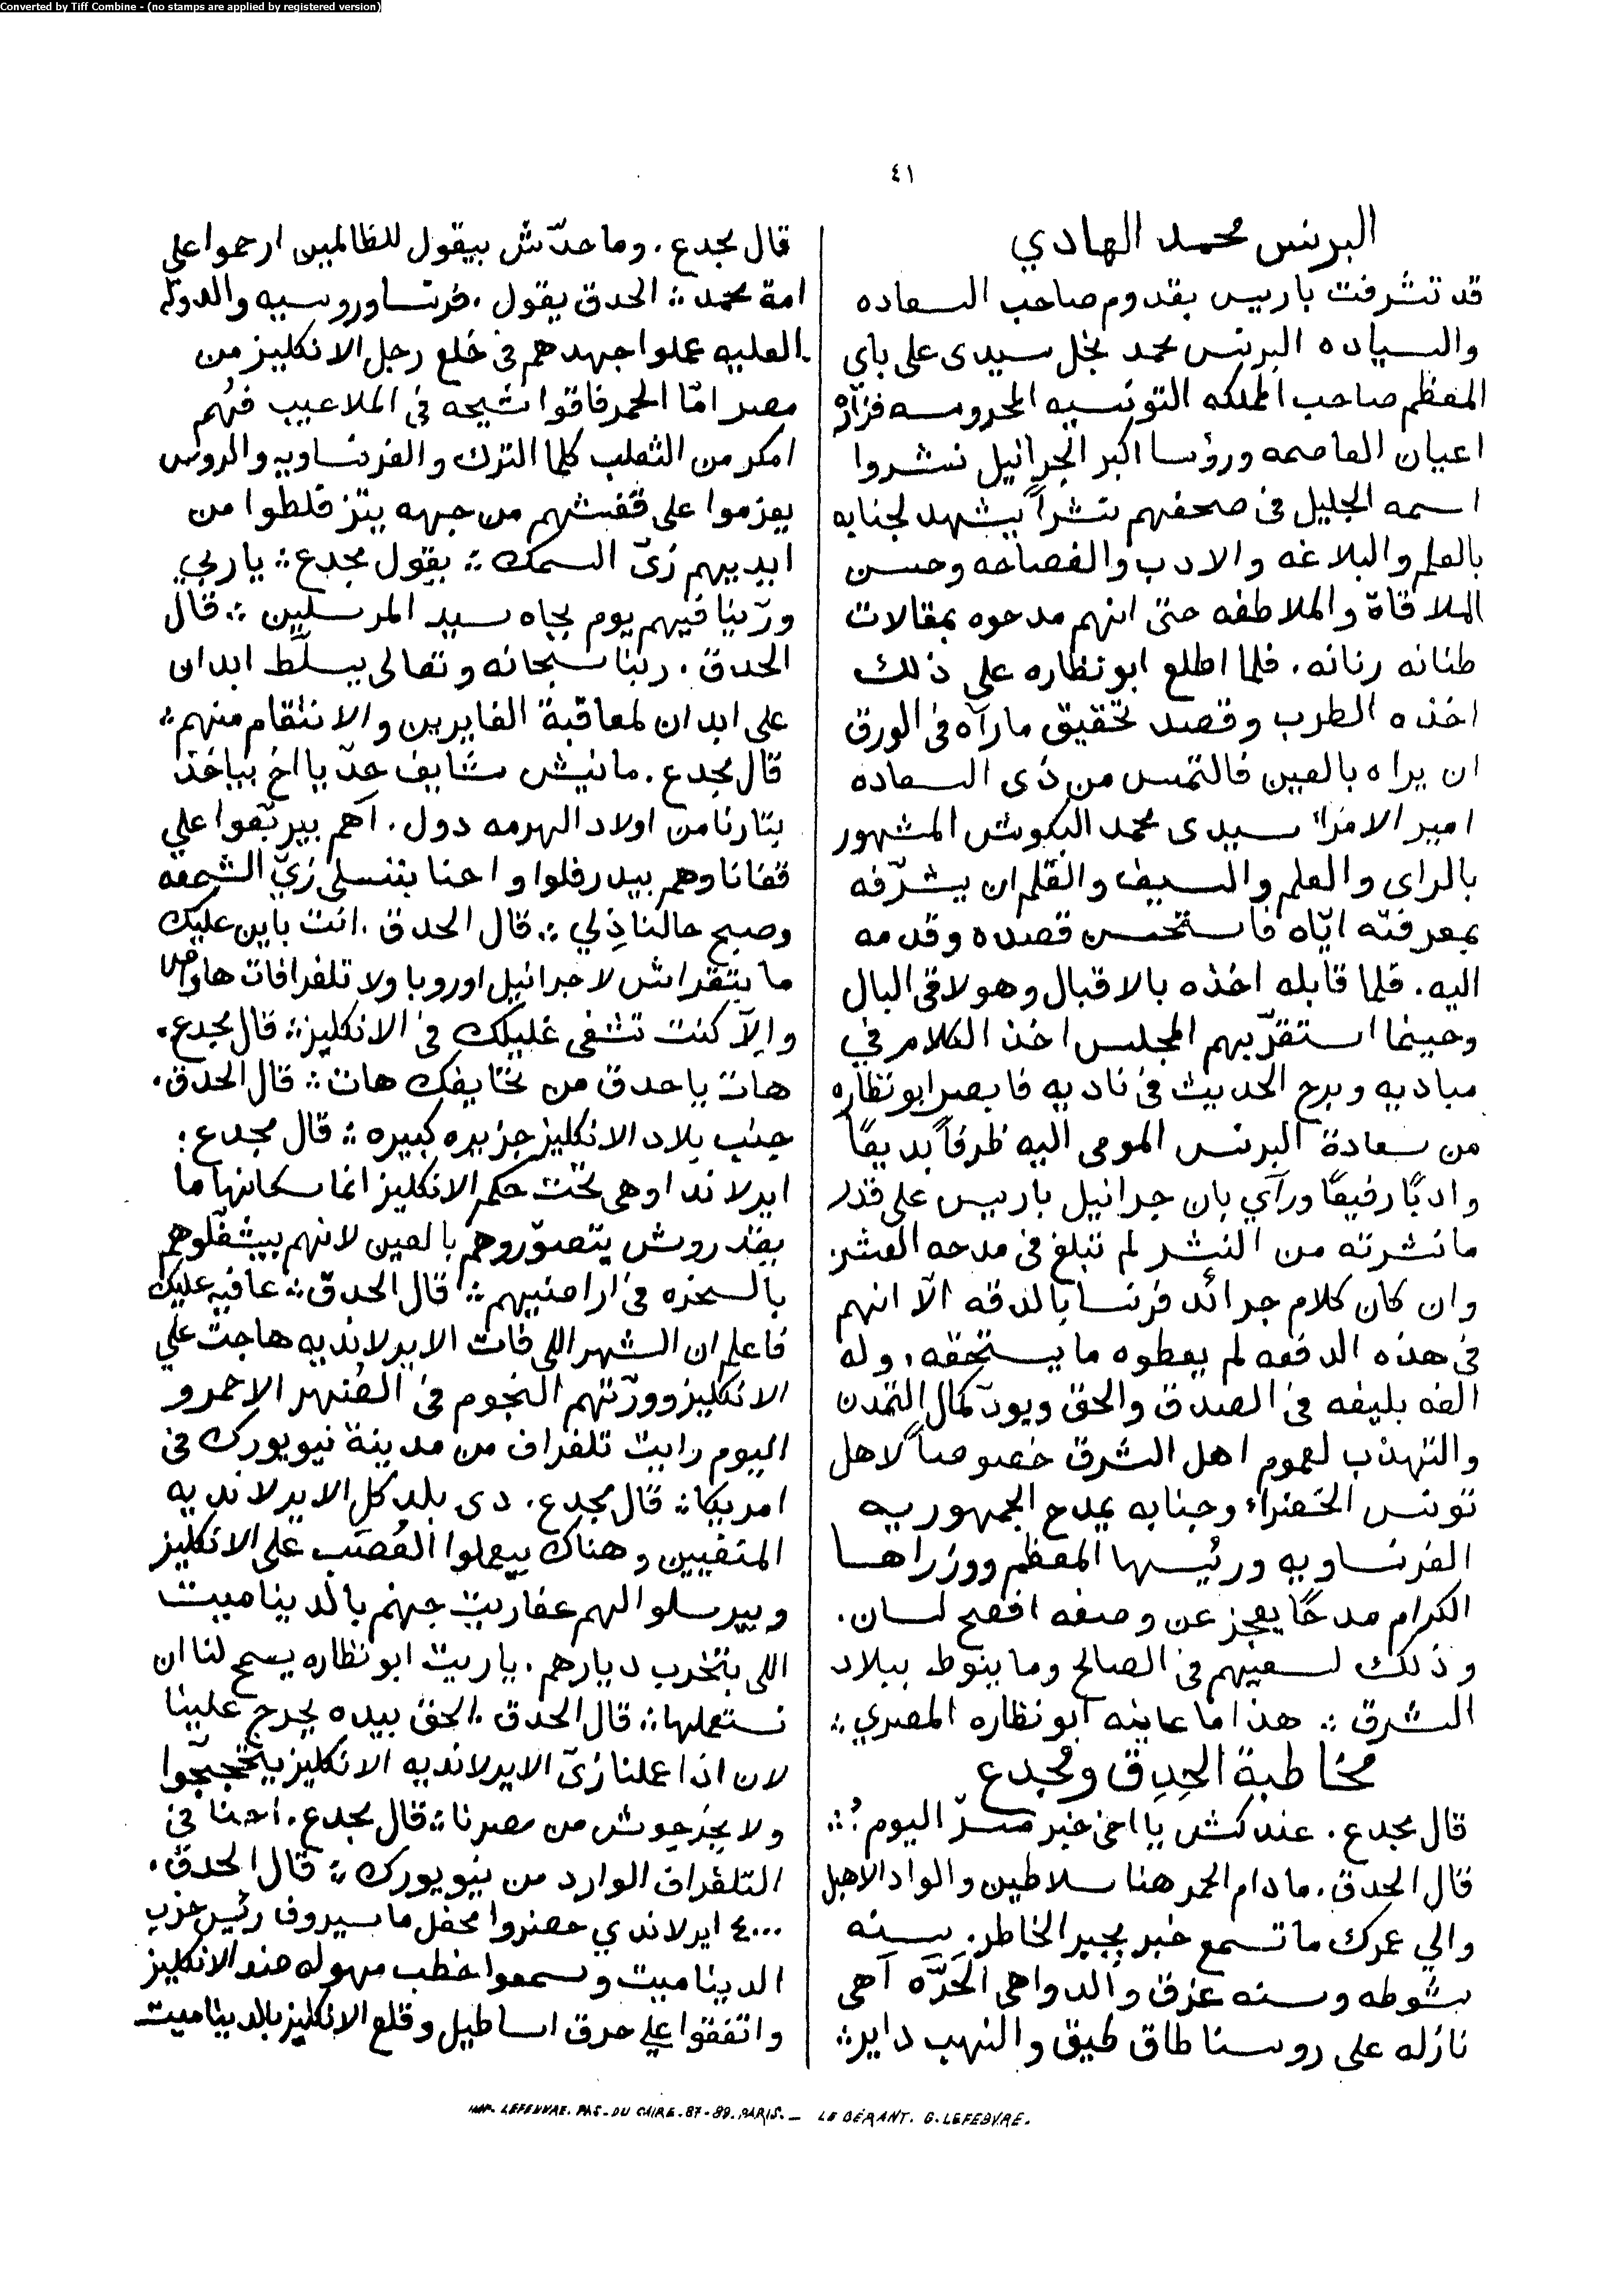 Converted by Tiff Combine - (no stamps are applied by registered version)
٤١
البرنس محمد الهادي
قد تشرفت باريس بقدوم صاحب السعاده
والسياده البرنس محمد نجل سيدى على باي
المعظم صاحب المملكه التونسيه المحروسه فزاره
اعيان العاصمه ورؤسا اكبر الجرانيل نشروا
اسمه الجليل فى صحفهم نشراً يشهد لجنابه
بالعلم والبلاغه والادب والفصاحه وحسن
الملاقاة والملاطفه حتى انهم مدحوه بمقالات
طنانه رنانه. فلما اطلع ابو نظاره على ذلك
اخذه الطرب وقصد تحقيق مارآه فى الورق
ان يراه بالعين فالتمس من ذى السعاده
امير الامرآ سيدى محمد البكوش المشهور
بالراى والعلم والسيف والقلم ان يشرّفه
بمعرفته ايّاه فاستحسن قصده وقدمه
اليه. فلما قابله اخذه بالاقبال وهو لاقى البال
وحينما استقرّ بهم المجلس اخذ الكلام في
مباديه وبرح الحديث فى ناديه فابصر ابو نظاره
من سعادة البرنس المومى اليه ظرفاً بديعًا
وادبًا رفيعًا ورآي بان جرانيل باريس على قدر
ما نشرته من النشر لم تبلغ فى مدحه العشر.
وان كان كلام جرائد فرنسا بالدقه الّا انهم
فى هذه الدفعه لم يعطوه ما يستحقه، وله
الفه بليغه فى الصدق والحق ويودّ كمال التمدن
والتهذب لعموم اهل الشرق خصوصاً لاهل
تونس الخضراء وجنابه يمدح الجمهوريه
الفرنساويه ورئيسها المعظم ووزراها
الكرام مدحًا يعجز عن وصفه افصح لسان.
وذلك لسعيهم فى الصالح وما ينوط ببلاد
الشرق ؞ هذا ما عاينه ابو نظاره المصري ؞
مخاطبة الحِدِق ومجدع
قال مجدع. عندكش يا اخى خبر مسرّ اليوم؟ ؞
قال الحدق. مادام الحمر هنا سلاطين والواد الاهبل
والي عمرك ما تسمع خبر يجبر الخاطر. سنه
شوطه وسنه غرق والدواهى الحَرّه آهى
نازله على روسنا طاق طيق والنهب داير ؞
قال مجدع. وما حدّش بيقول للظالمين ارحموا على
امة محمد ؞ الحدق يقول. فرنسا وروسيه والدوله
العليه عملوا جهدهم فى خلع رجل الانكليز من
مصر امّا الحمر فاقوا شيحه فى الملاعيب فهُم
امكر من الثعلب كلما الترك والفرنساويه والروس
يعزموا على قفشهم من جهه يتزفلطوا من
ايديهم زىّ السمك ؞ يقول مجدع ؞ يا ربي
ورّينا فيهم يوم بجاه سيد المرسلين ؞ قال
الحدق. ربنا سبحانه وتعالى يسلّط ابدان
على ابدان لمعاقبة الغايرين والانتقام منهم ؞
قال مجدع. مانيش شايف حدّ يا اخ بياخذ
بتارنا من اولاد الهرمه دول. آهم بيرتعوا علي
قفانا وهم بيدرفلوا واحنا بننسلى زيّ الشمعه
وصبح حالنا ذِلي ؞ قال الحدق. انت باين عليك
ما بتقراش لا جرانيل اوروبا ولا تلغرافات هاواص
والّا كنت تشفى غليلك فى الانكليز ؞ قال مجدع.
هات يا حدق من تخايفك هات ؞ قال الحدق.
جنب بلاد الانكليز جزيره كبيره ؞ قال مجدع:
ايرلاندا وهى تحت حكم الانكليز انما سكانها ما
يقدروش يتصوّروهم بالعين لانهم بيشغّلوهم
بالسخره فى اراضيهم ؞ قال الحدق ؞ عافيه عليك
فاعلم ان الشهر اللى فات الايرلانديه هاجت علي
الانكليز وورّتهم النجوم فى الضُهر الاحمر و
اليوم رايت تلغراف من مدينة نيويورك فى
امريكا ؞ قال مجدع. دى بلد كل الايرلانديه
المنفيين وهناك بيعملوا العُصَب على الانكليز
وبيرسلوا لهم عفاريت جهنم بالديناميت
اللى بتخرب ديارهم. ياريت ابو نظاره يسمح لنا ان
نستعملها ؞ قال الحدق. الحق بيده يحرج علينا
لان اذا عملنا زىّ الايرلانديه الانكليز يتحججّوا
ولا يخرجوش من مصرنا ؞ قال مجدع. احنا فى
التلغراف الوارد من نيويورك ؞ قال الحدق.
٤٠٠٠ ايرلاندي حضروا محفل ماسيروف رئيس حزب
الديناميت وسمعوا خطب مهوله ضد الانكليز
واتفقوا علي حرق اساطيل وقلع الانكليز بالديناميت
IMP. LEFEBVRE. PAS. DU CAIRE. 87-89. PARIS. — LE GÉRANT. G. LEFEBVRE.